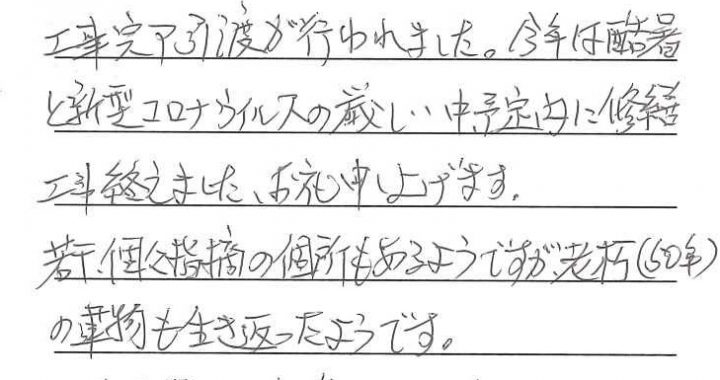 工事完了引渡が行われました。今年は酷暑
と新型コロナウイルスの厳しい中予定内に修繕
工事終えました、お礼申し上げます。
若干、個々指摘の個所もあるようですが、老朽(50年)
の建物も生き返ったようです。